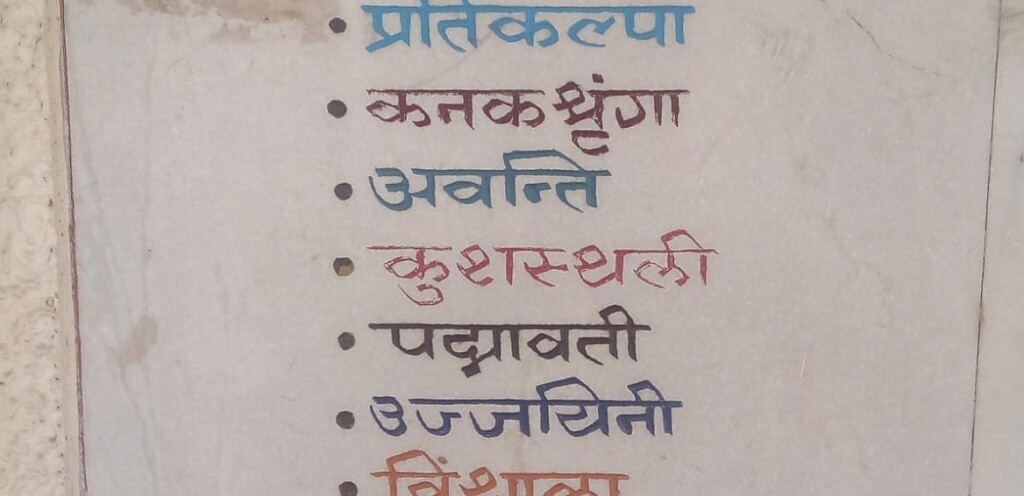 • प्रतिकल्पा
• कनकश्रृंगा
• अवन्ति
• कुशस्थली
• पद्मावती
• उज्जयिनी
• विंशाला